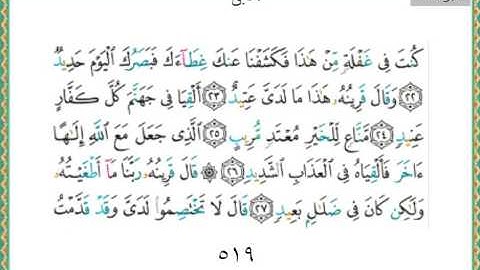 كُنتَ فِى غَفْلَةٍ مِّنْ هَٰذَا فَكَشَفْنَا عَنكَ غِطَآءَكَ فَبَصَرُكَ ٱلْيَوْمَ حَدِيدٌ
﴿٢٢﴾ وَقَالَ قَرِينُهُۥ هَٰذَا مَا لَدَىَّ عَتِيدٌ ﴿٢٣﴾ أَلْقِيَا فِى جَهَنَّمَ كُلَّ كَفَّارٍ
عَنِيدٍ ﴿٢٤﴾ مَّنَّاعٍ لِّلْخَيْرِ مُعْتَدٍ مُّرِيبٍ ﴿٢٥﴾ ٱلَّذِى جَعَلَ مَعَ ٱللَّهِ إِلَٰهًا
ءَاخَرَ فَأَلْقِيَاهُ فِى ٱلْعَذَابِ ٱلشَّدِيدِ ﴿٢٦﴾ ۞ قَالَ قَرِينُهُۥ رَبَّنَا مَآ أَطْغَيْتُهُۥ
وَلَٰكِن كَانَ فِى ضَلَٰلٍۭ بَعِيدٍ ﴿٢٧﴾ قَالَ لَا تَخْتَصِمُوا۟ لَدَىَّ وَقَدْ قَدَّمْتُ
٥١٩